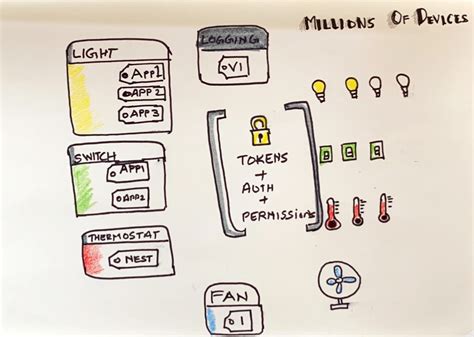 MILLIONS OF DEVICES
LIGHT
APP1
APP 2
APP 3
LOGGING
V1
SWITCH
APP1
APP2
TOKENS
+
AUTH
+
PERMISSIONS
THERMOSTAT
NEST
FAN
1